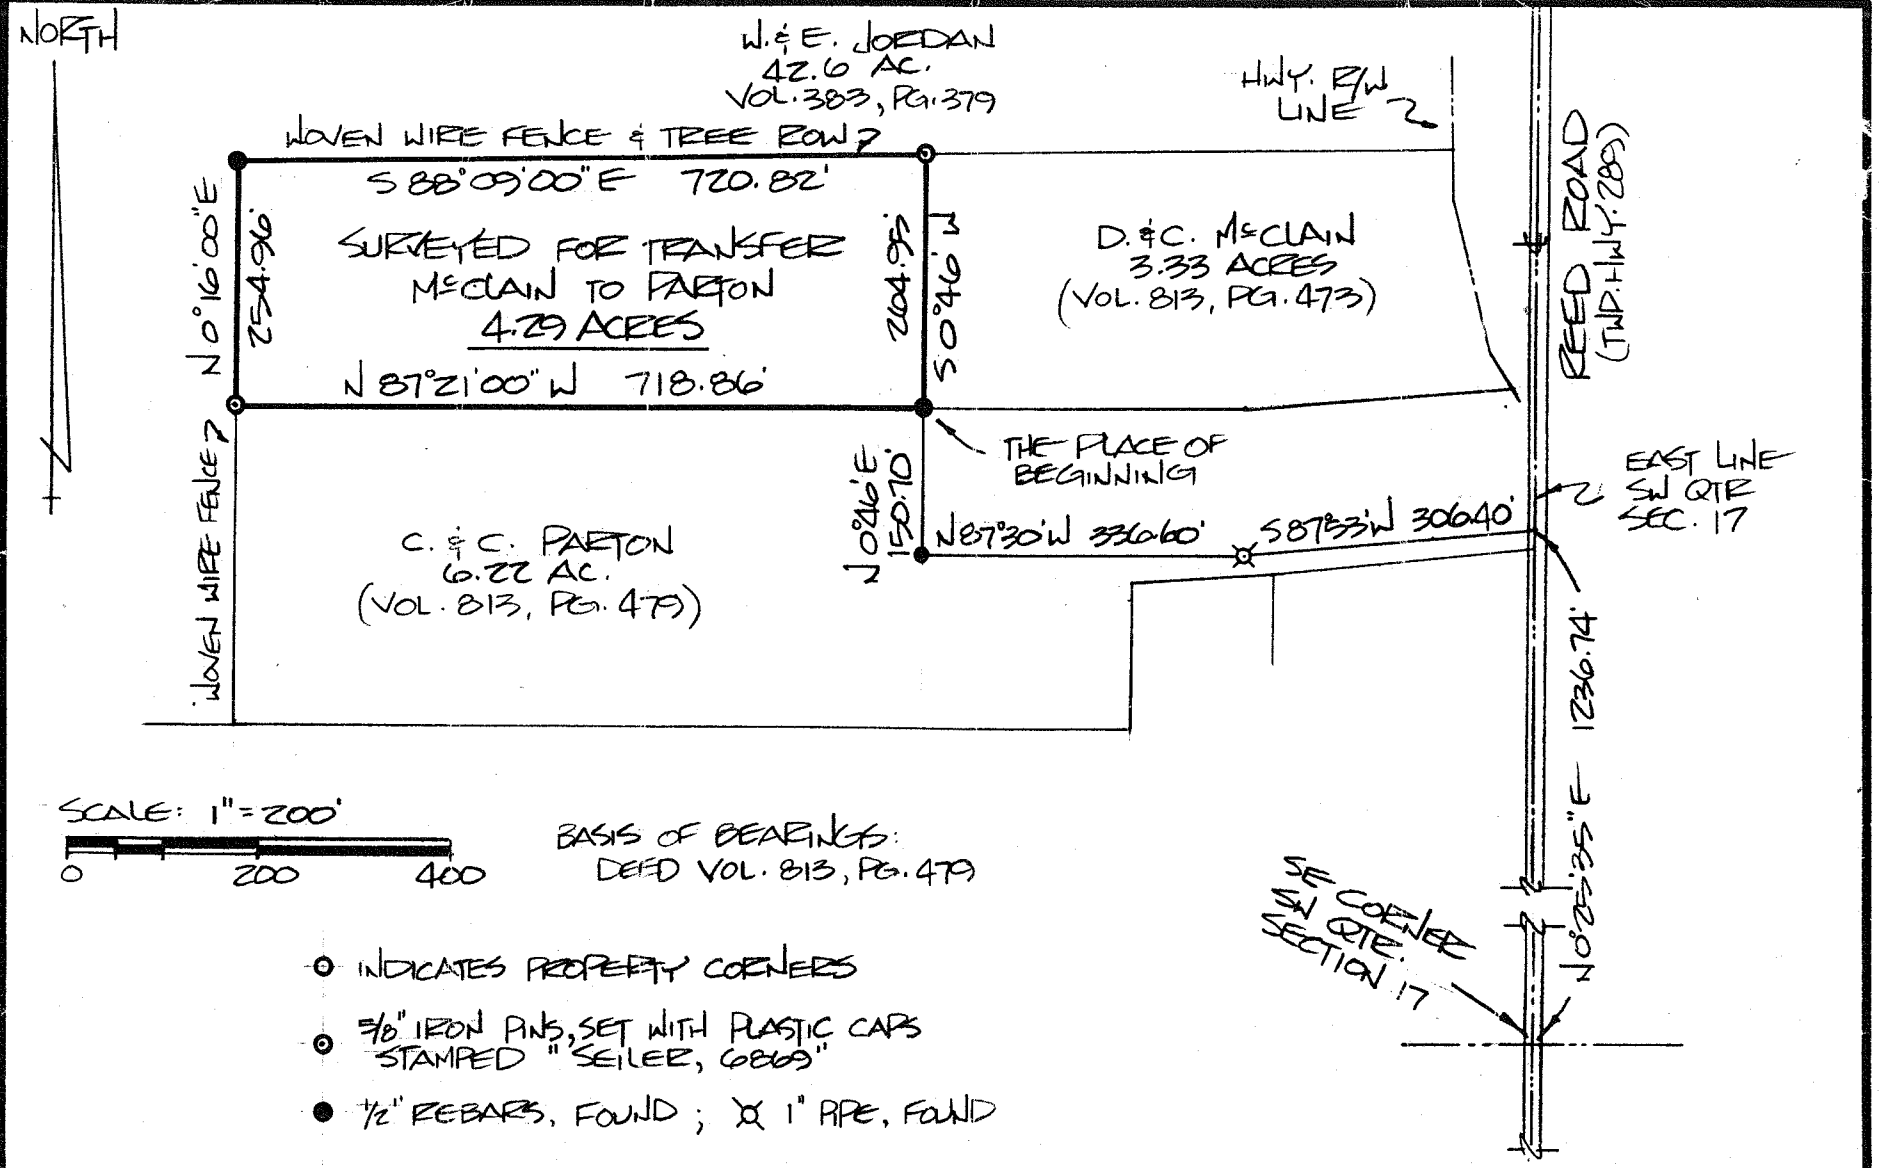 NORTH
W. & E. JORDAN
42.6 AC.
VOL. 383, PG. 379
HWY. R/W
LINE
WOVEN WIRE FENCE & TREE ROW
S 88°09'00" E 720.82'
N 0°16'00" E
254.96'
SURVEYED FOR TRANSFER
McCLAIN TO PARTON
4.29 ACRES
264.95'
S 0°46' W
D. & C. McCLAIN
3.33 ACRES
(VOL. 813, PG. 473)
REED ROAD
(TWP. HWY. 289)
N 87°21'00" W 718.86'
THE PLACE OF
BEGINNING
WOVEN WIRE FENCE
N 0°46' E
150.70'
EAST LINE
SW QTR
SEC. 17
N 87°30' W 336.60'
S 87°33' W 306.40'
C. & C. PARTON
6.22 AC.
(VOL. 813, PG. 479)
N 0°25'35" E 1236.74'
SCALE: 1" = 200'
0 200 400
BASIS OF BEARINGS:
DEED VOL. 813, PG. 479
SE CORNER
SW QTR.
SECTION 17
INDICATES PROPERTY CORNERS
5/8" IRON PINS, SET WITH PLASTIC CAPS
STAMPED "SEILER, 6869"
1/2" REBARS, FOUND ; 1" PIPE, FOUND